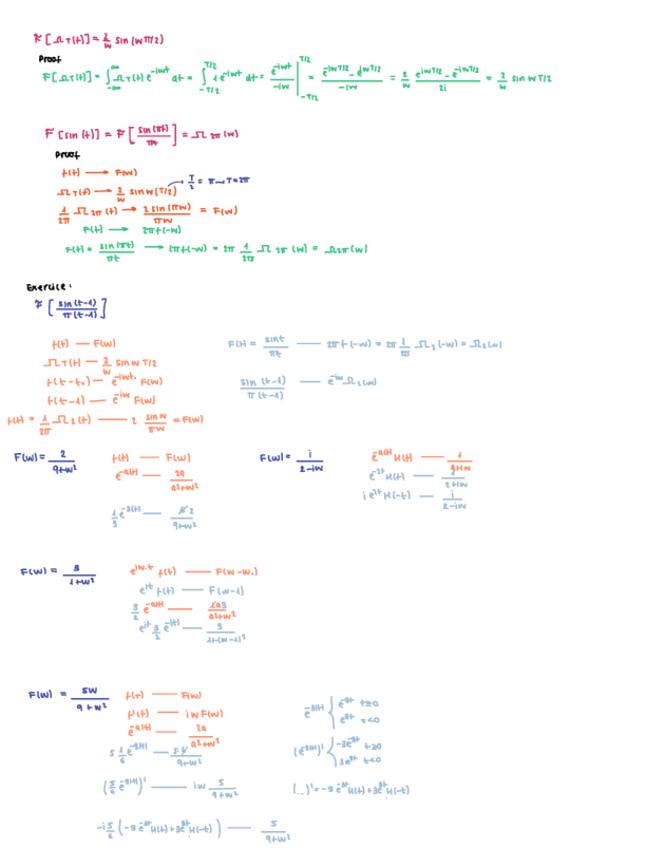 F[Ω_T(t)] = 2/w sin(wT/2)
Proof
F[Ω_T(t)] = ∫_{-∞}^{+∞} Ω_T(t) e^{-iwt} dt = ∫_{-T/2}^{T/2} 1 e^{-iwt} dt = e^{-iwt}/-iw |_{-T/2}^{T/2} = e^{-iwT/2} - e^{iwT/2} / -iw = 2/w e^{iwT/2} - e^{-iwT/2} / 2i = 2/w sin wT/2
F[sin(t)] = F[sin(πt)/πt] = Ω_2π(w)
Proof
f(t) → F(w)
Ω_T(t) → 2/w sin w(T/2) → T/2 = π → T = 2π
1/2π Ω_2π(t) → 2 sin(πw)/πw = F(w)
F(t) → 2πf(-w)
F(t) = sin(πt)/πt → 2πf(-w) = 2π 1/2π Ω_2π(w) = Ω_2π(w)
Exercice:
F[sin(t-1)/π(t-1)]
f(t) — F(w)
F(t) = sint/πt — 2πf(-w) = 2π 1/2π Ω_2(-w) = Ω_2(w)
Ω_T(t) — 2/w sin w T/2
f(t-t₀) — e^{-iwt₀} F(w)
sin(t-1)/π(t-1) — e^{-iw} Ω_2(w)
f(t-1) — e^{-iw} F(w)
f(t) = 1/2π Ω_2(t) — 2 sin w/πw = F(w)
F(w) = 2/9+w²
f(t) — F(w)
e^{-a|t|} — 2a/a²+w²
1/3 e^{-3|t|} — 2/9+w²
F(w) = i/2-iw
e^{-at} H(t) — 1/a+iw
e^{-2t} H(t) — 1/2+iw
i e^{2t} H(-t) — i/2-iw
F(w) = 3/1+w²
e^{iw₀t} f(t) — F(w-w₀)
e^{it} f(t) — F(w-1)
3/2 e^{-a|t|} — 2a3/a²+w²
e^{it} 3/2 e^{-|t|} — 3/1+(w-1)²
F(w) = 5w/9+w²
f(t) — F(w)
f'(t) — iwF(w)
e^{-a|t|} — 2a/a²+w²
5 1/6 e^{-3|t|} — 5/9+w²
(5/6 e^{-3|t|})' — iw 5/9+w²
-i 5/6 (-3e^{-3t}H(t)+3e^{3t}H(-t)) — 5/9+w²
e^{-3|t|} { e^{-3t} t≥0
e^{3t} t<0
(e^{-3|t|})' { -3e^{-3t} t≥0
3e^{3t} t<0
(...)' = -3e^{-3t}H(t)+3e^{3t}H(-t)